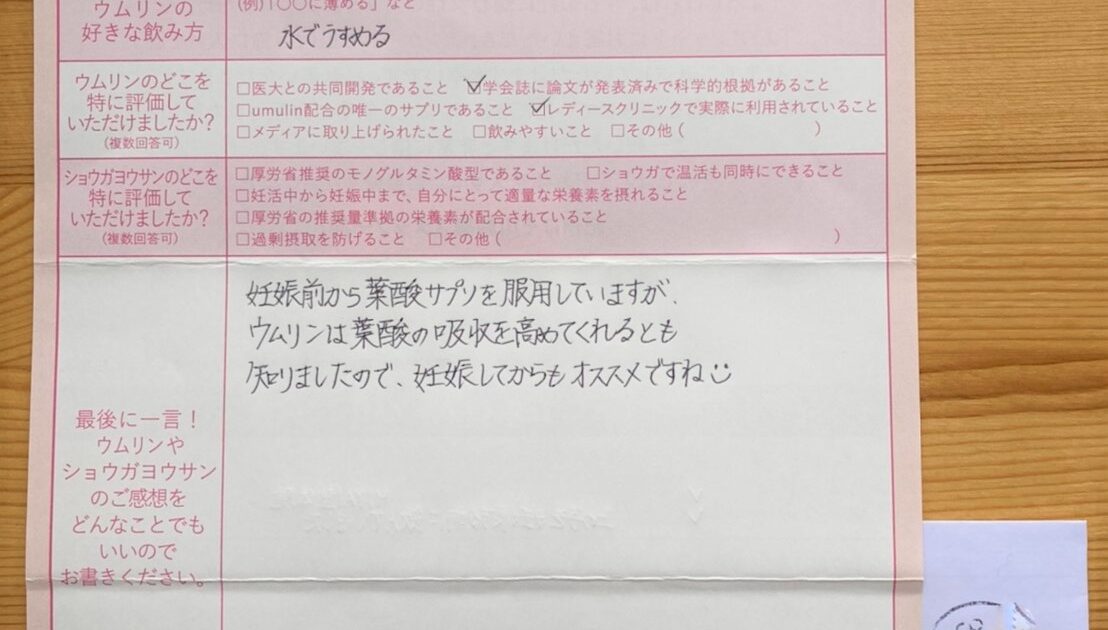 ウムリンの
好きな飲み方
(例)「〇〇に薄める」など
水でうすめる
ウムリンのどこを
特に評価して
いただけましたか?
(複数回答可)
□医大との共同開発であること ☑学会誌に論文が発表済みで科学的根拠があること
□umulin配合の唯一のサプリであること ☑レディースクリニックで実際に利用されていること
□メディアに取り上げられたこと □飲みやすいこと □その他 ( )
ショウガヨウサンのどこを
特に評価して
いただけましたか?
(複数回答可)
□厚労省推奨のモノグルタミン酸型であること □ショウガで温活も同時にできること
□妊活中から妊娠中まで、自分にとって適量な栄養素を摂れること
□厚労省の推奨量準拠の栄養素が配合されていること
□過剰摂取を防げること □その他 ( )
最後に一言!
ウムリンや
ショウガヨウサン
のご感想を
どんなことでも
いいので
お書きください。
妊娠前から葉酸サプリを服用していますが、
ウムリンは葉酸の吸収を高めてくれるとも
知りましたので、妊娠してからもオススメですね